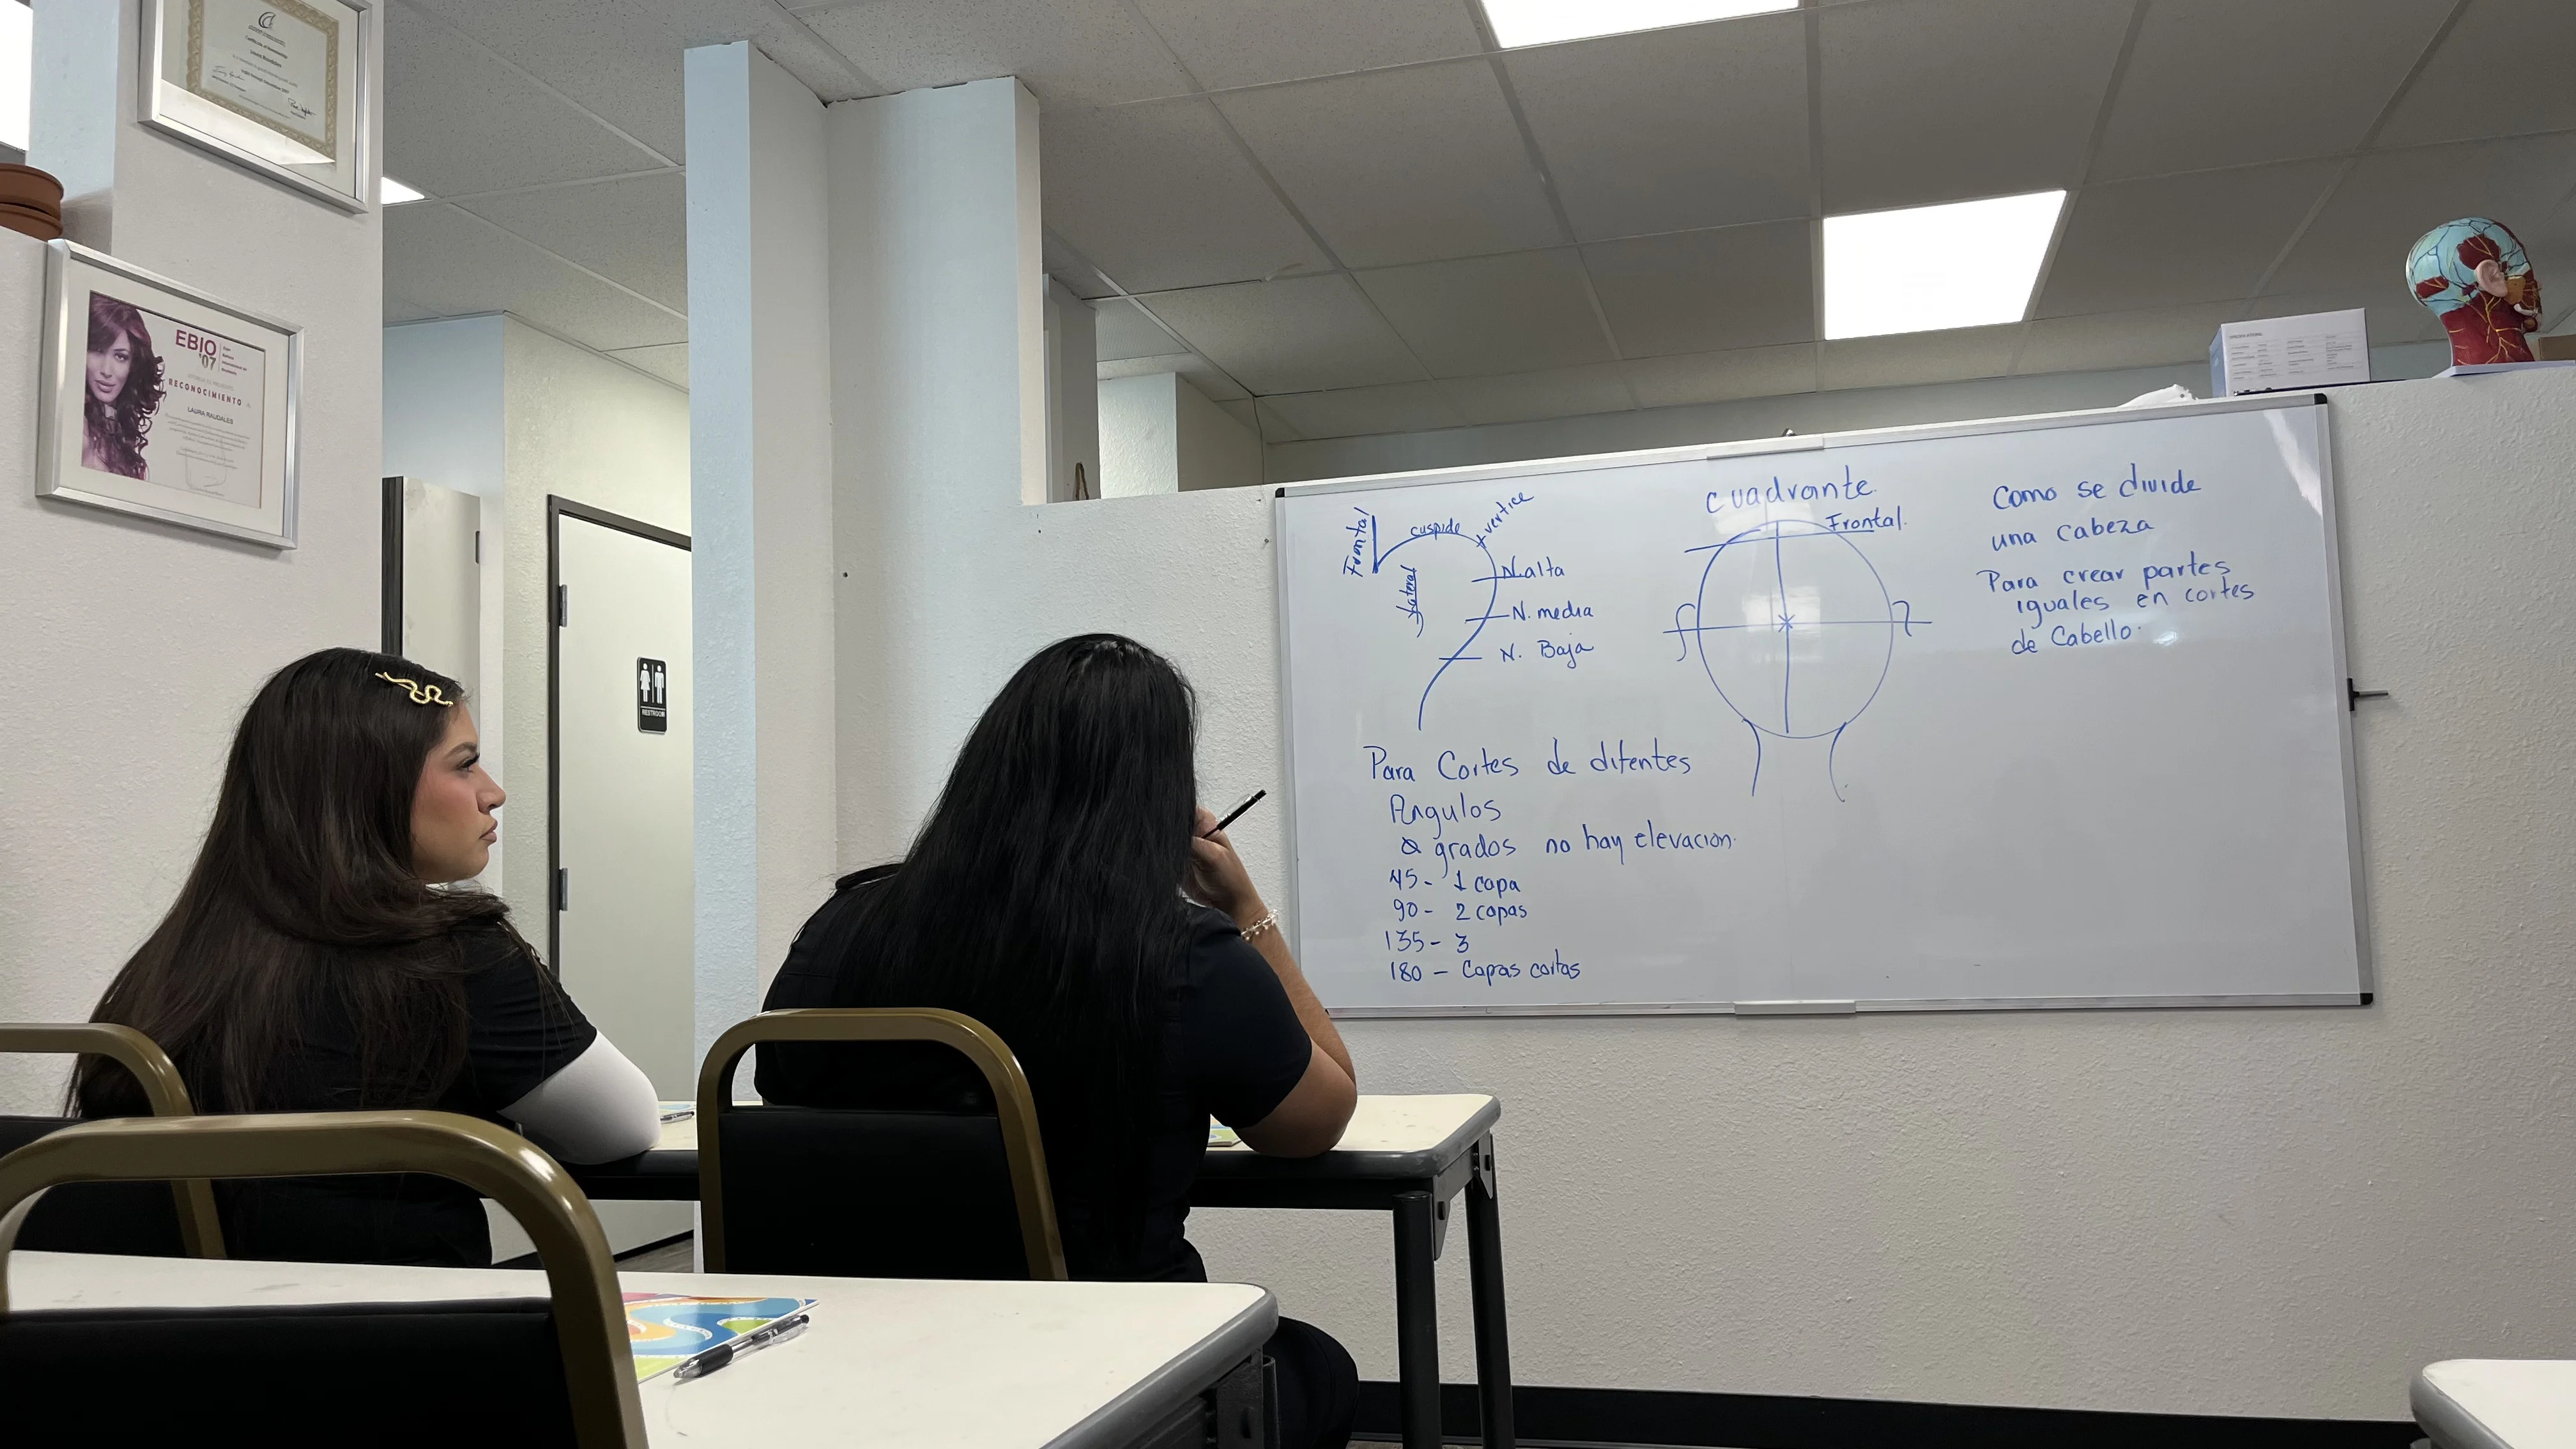 EBIO
'07
RECONOCIMIENTO
LAURA RAUDALES
RESTROOM
Frontal
cuspide
vertice
Lateral
N. alta
N. media
N. Baja
cuadrante
Frontal.
Como se divide
una cabeza
Para crear partes
iguales en cortes
de Cabello.
Para Cortes de difentes
Angulos
0 grados no hay elevacion.
45- 1 capa
90- 2 capas
135- 3
180 - Capas cortas